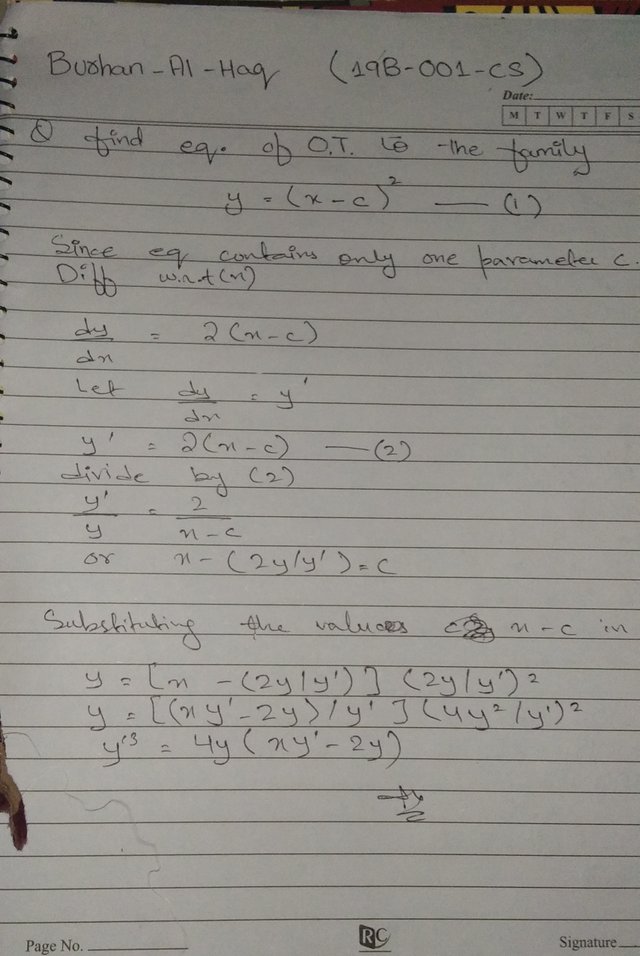 Burhan-Al-Haq (19B-001-CS)
Date:
M T W T F S
Q find eq. of O.T. to the family
y = (x-c)² — (1)
Since eq contains only one parameter c.
Diff w.r.t (x)
dy/dx = 2(x-c)
Let dy/dx = y'
y' = 2(x-c) — (2)
divide by (2)
y'/y = 2/x-c
or x - (2y/y') = c
Substituting the values x-c in
y = [x - (2y/y')] (2y/y')²
y = [(xy'-2y)/y'] (4y²/y')²
y'³ = 4y(xy'-2y)
Page No.
RC
Signature